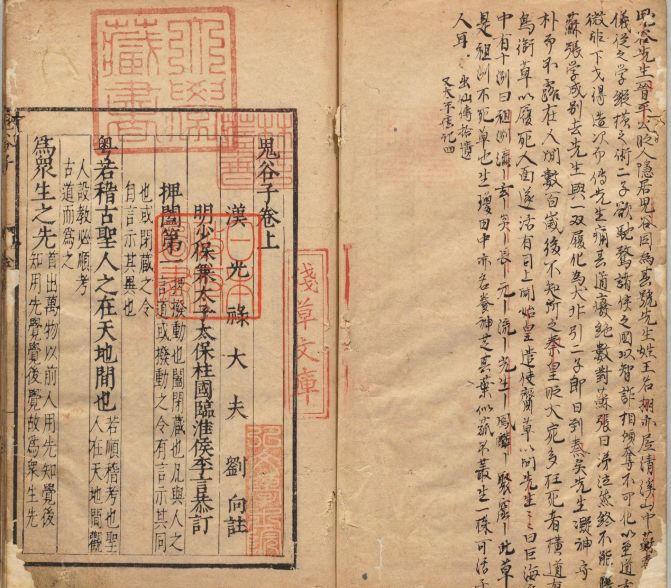 鬼谷先生晉平公時人隱居鬼谷因為其號先生姓王名栩亦居清溪山中蘇
儀從之學縱橫之術二子欲馳騖諸侯之國以智詐相傾奪不可化以至道
微非下才得造次而傳先生痛其道廢絶數對蘇張曰涕泣然終不能
蘇張學成別去先生與一隻履化為犬非引二子即日到秦矣先生凝神守
朴而不露在人間數百歲後不知所之秦皇時大宛多枉死者橫道有
鳥銜草以履死人面遂活有司上聞始皇遣使齎草以問先生〻曰巨海
中有十洲曰祖洲瀛〡玄〡炎〡長〡元〡流〡光生〡鳳麟〡聚窟〡此草
是祖洲不死草也生瓊田中亦名養神芝其葉似菰不叢生一株可活千
人耳
出仙傳拾遺
又太平廣記四
鬼谷子卷上
漢光祿大夫劉向註
明少保兼太子太保柱國臨淮侯李言恭訂
捭闔第一
捭撥動也闔閉藏也凡與人之
言道或撥動之令有言示其同
也或閉藏之令
自言示其異也
粤若稽古聖人之在天地間也
若順稽考也聖
人在天地間觀
人設教必順考
古道而為之
為眾生之先
首出萬物以前人用先知覺後
知用先覺覺後覺故為眾生先
鬼谷子
淺草文庫
日本
藏書